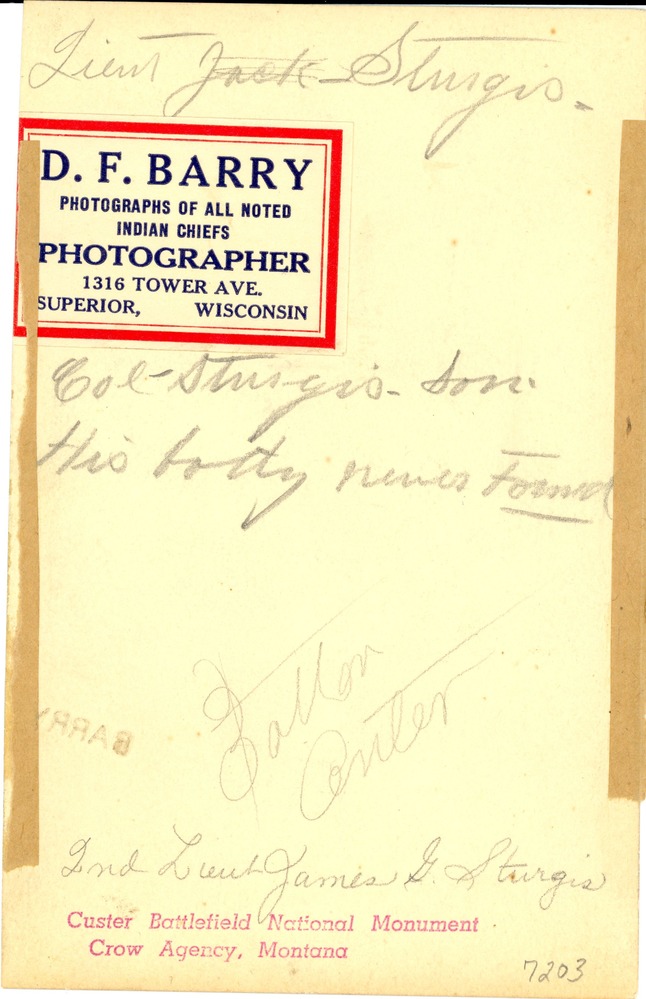 Lieut Jack Sturgis.
D. F. BARRY
PHOTOGRAPHS OF ALL NOTED
INDIAN CHIEFS
PHOTOGRAPHER
1316 TOWER AVE.
SUPERIOR, WISCONSIN
Col Sturgis- Son.
His body never Found
BARRY
2nd Lieut James G. Sturgis
Custer Battlefield National Monument
Crow Agency, Montana
7203